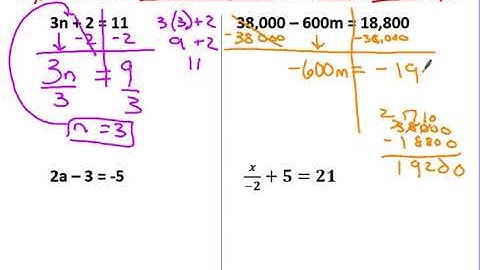 3n + 2 = 11
-2 -2
3n = 9
3 3
n = 3
3(3)+2
9 + 2
11
38,000 – 600m = 18,800
-38000 -38,000
-600m = -19
2 17 10
38000
-18800
19200
2a – 3 = -5
x/-2 + 5 = 21